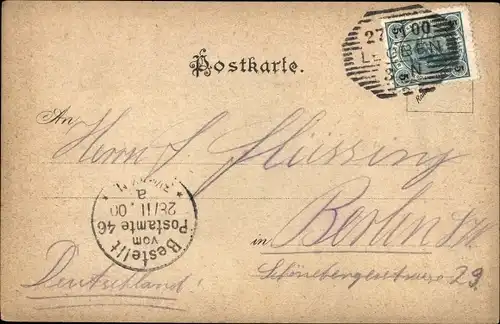 27 11 00
LEOBEN
Postkarte.
An
Herrn J. Flüssing
Bestellt
vom
Postamte 46
28/11.00
a
in Berlin S.W.
Schönebergerstrasse 29.
Deutschland!